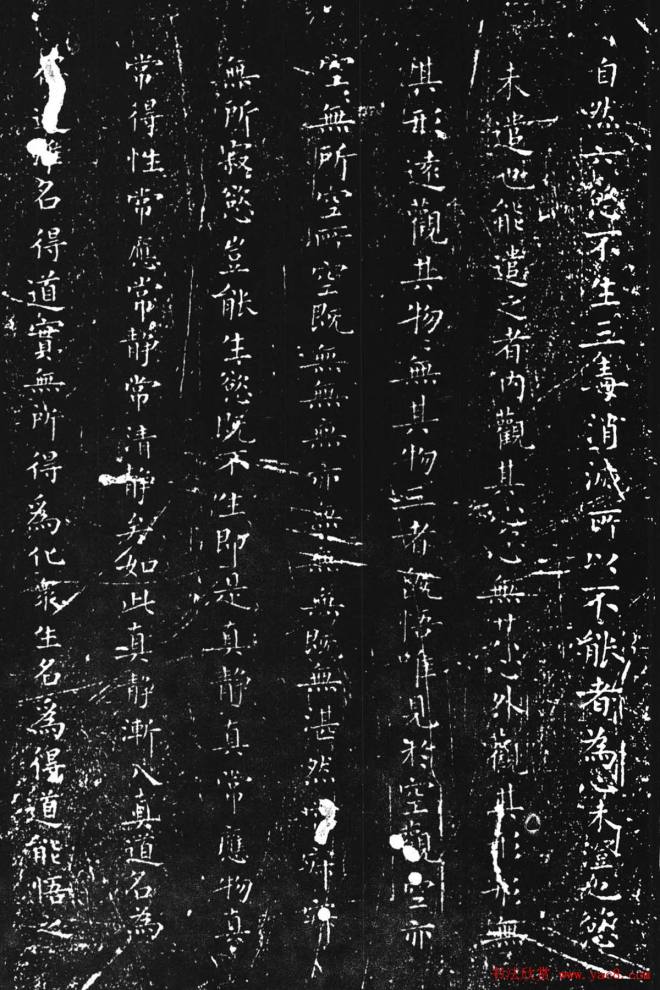 自然六慾不生三毒消滅所以不能者為心未澄也慾
未遣也能遣之者內觀其心〻無其心外觀其形形無
其形遠觀其物〻無其物三者既悟唯見於空觀空亦
空〻無所空所空既無無無亦無無無既無湛然
無所寂慾豈能生慾既不生即是真靜真常應物真
常得性常應常静常清静矣如此真静漸入真道名為
道雖名得道實無所得為化衆生名為得道能悟之
书法欣赏 www.yac8.com